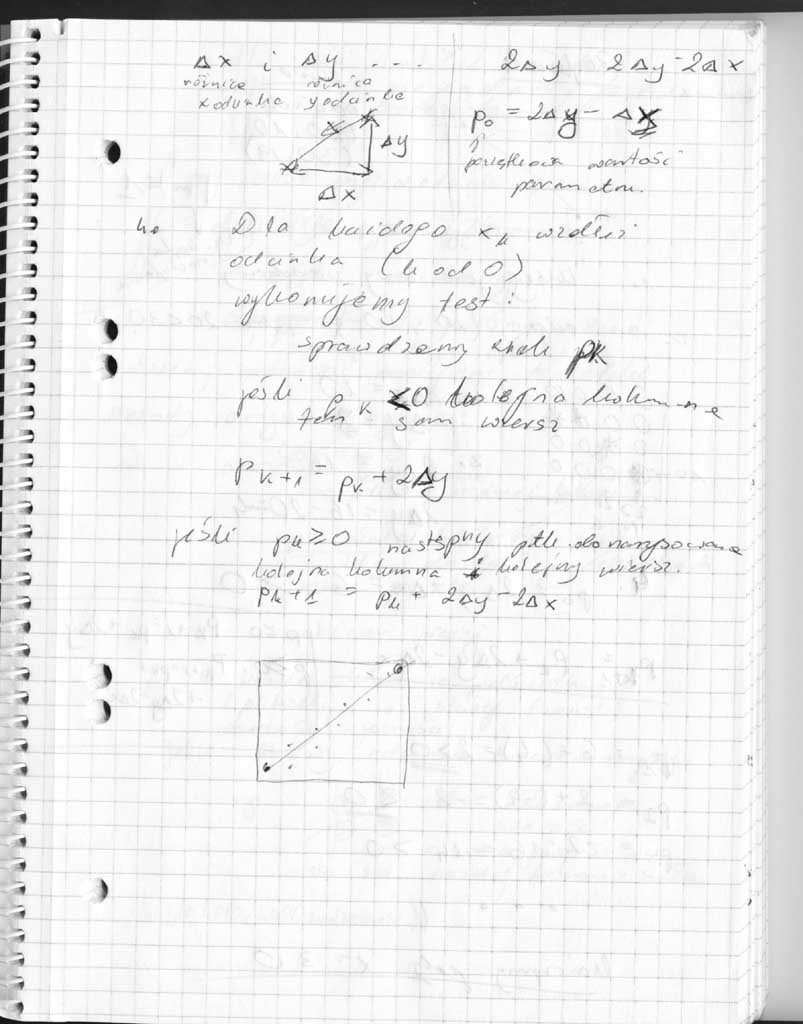 Δx i Δy ...
różnice różnice
x odcinka y odcinka
Δy
Δx
2Δy 2Δy-2Δx
p₀ = 2Δy - Δx
początkowa wartość
parametru.
4.
Dla każdego xₖ wzdłuż
odcinka (k od 0)
wykonujemy test:
sprawdzamy znak pk
jeśli pₖ <0 kolejna kolumna
ten sam wiersz
pₖ₊₁ = pₖ + 2Δy
jeśli pₖ ≥ 0 następny pkt. do narysowania
kolejna kolumna i kolejny wiersz.
pₖ+1 = pₖ + 2Δy - 2Δx